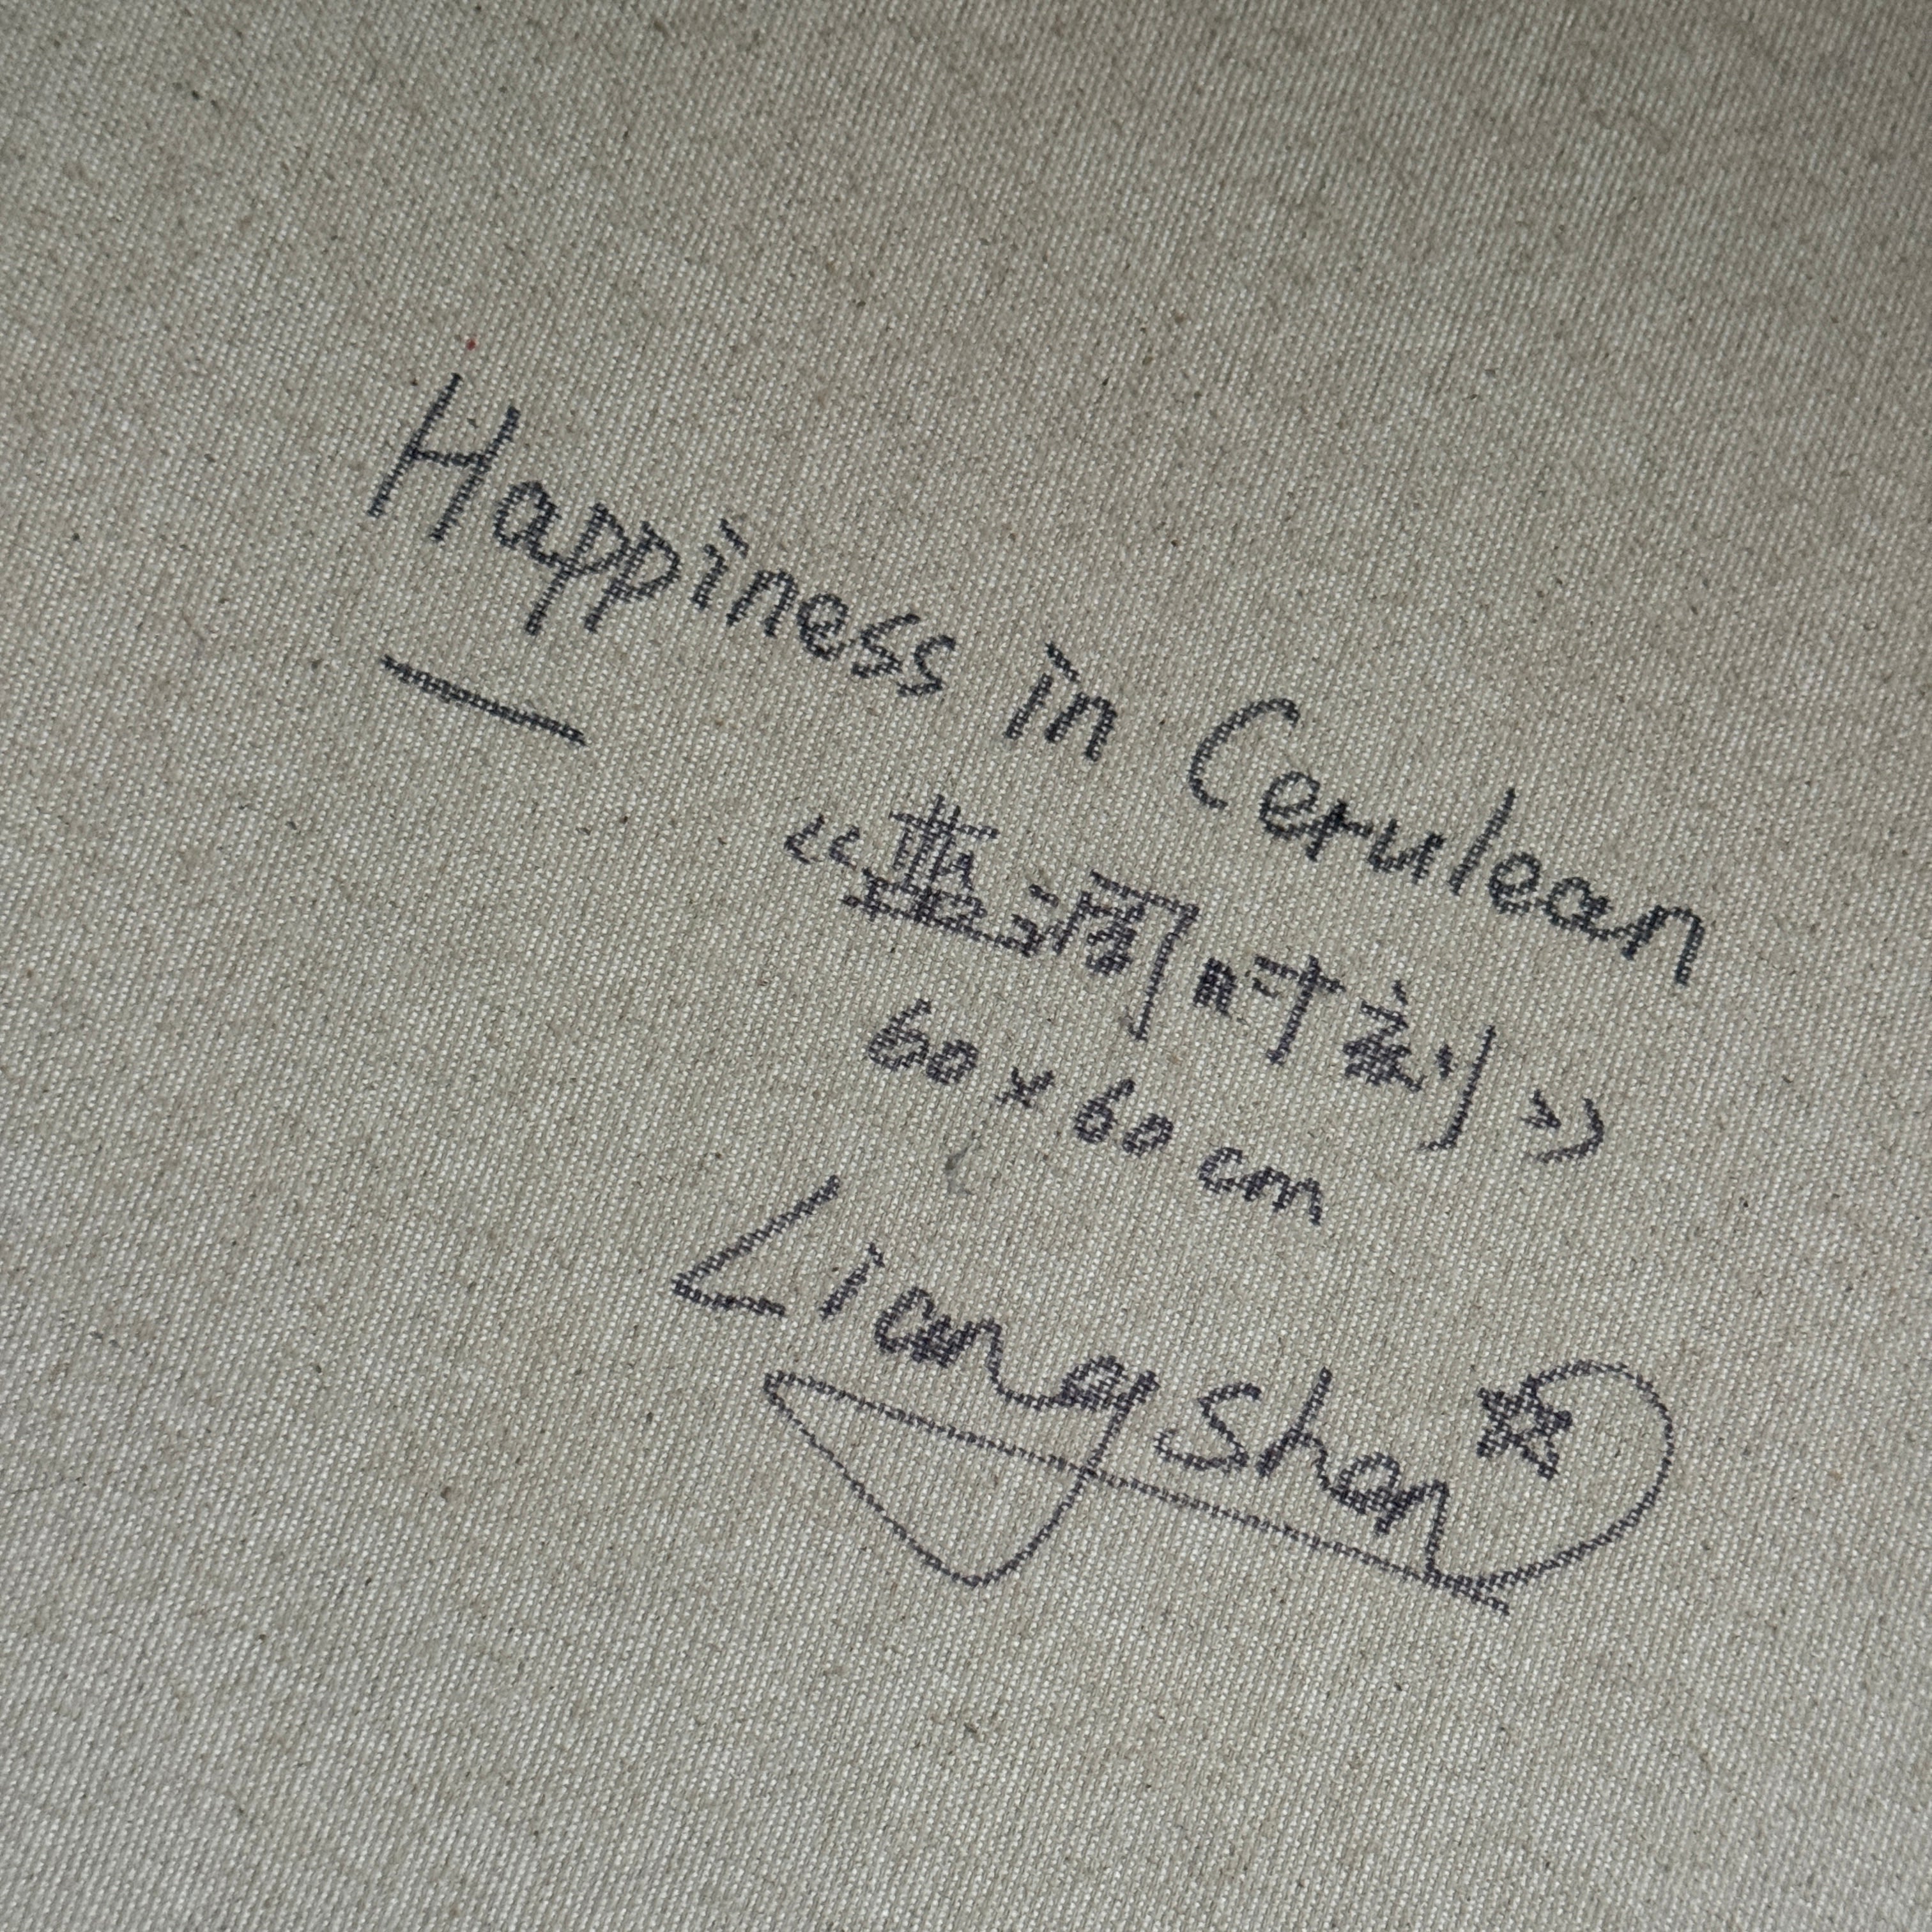 Happiness in Cerulean
《蓝调时刻》
60 x 60 cm
Liang Shan